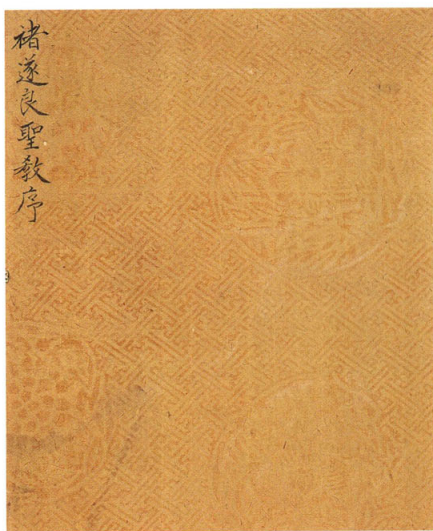 褚遂良聖教序